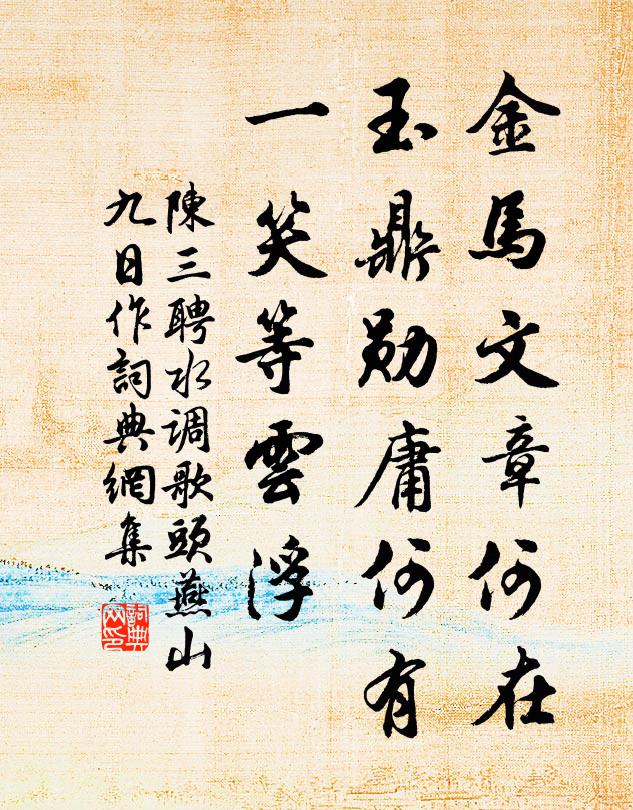 金馬文章何在
玉鼎勛庸何有
一笑等雲浮
陳三聘水调歌頭燕山
九日作詞典網集
詞典
网印